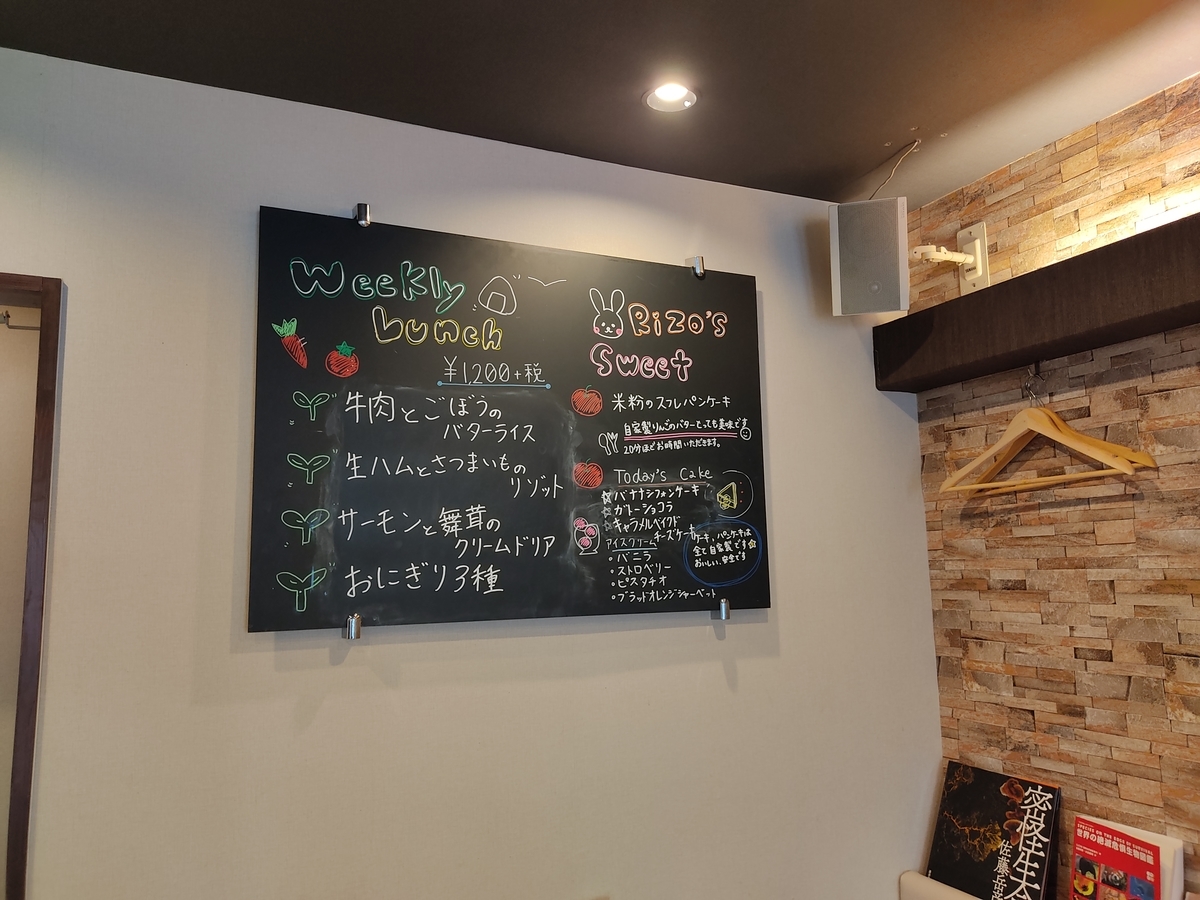 Weekly
Lunch
¥1,200+税
牛肉とごぼうの
バターライス
生ハムとさつまいもの
リゾット
サーモンと舞茸の
クリームドリア
おにぎり3種
Rizo's
Sweet
米粉のスフレパンケーキ
自家製りんごのバターとっても美味です
20分ほどお時間いただきます。
Today's Cake
バナナシフォンケーキ
ガトーショコラ
キャラメルベイクド
チーズケーキ
アイスクリーム
・バニラ
・ストロベリー
・ピスタチオ
・ブラッドオレンジシャーベット
ケーキ、パンケーキは
全て自家製です
おいしい、安全です
密怪生大
佐藤岳彦
SPECIES ON THE EDGE OF SURVIVAL
世界の絶滅危惧生物図鑑